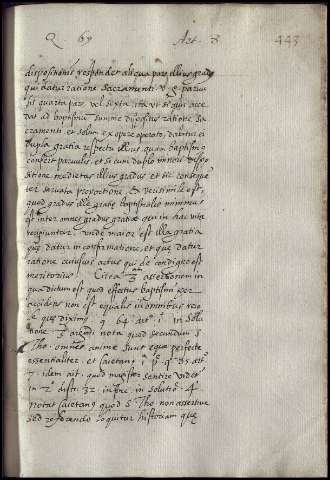 Q. 69 Art. 8 443
dispositionis respondet aliqua pars illius gradus
qui datur ratione sacramenti v. g. parius
sit quarta pars vel sexta ita vt si qui acce
dat ad baptismu summe dispositus ratione sa
cramenti et solum ex opere operato, dabitur ei
dupla gratia respectu illius quam baptismus
confert paruulis, et si cum duplo minori dispo
sitione medietas illius gradus et sic conseque
ter seruata proportione, & verisimile est,
quod gradus ille gratiæ baptismalis minimus
est inter omnes gradus gratiæ qui in hac vita
recipiuntur. unde maior est illa gratia
que datur in confirmatione, et que datur
ratione cuiusuis actus qui de condigno est
meritorius Circa 3m assertionem in
qua dictum est quod effectus baptismi per
accidens non est equalis in omnibus vide
que diximus q 64 artº 1º in solu
tione 3 argti nota quod secundum S
Tho. omnes anime sunt eque perfecte
essentialiter et Caietanus 1ª p. q 85 artº
7. idem ait. quod magister sentire videt
in 2 dist. 32 in fine. in solutio. 4
notat Caietanus quod S Tho. non assertiue
sed referendo loquitur historiam que